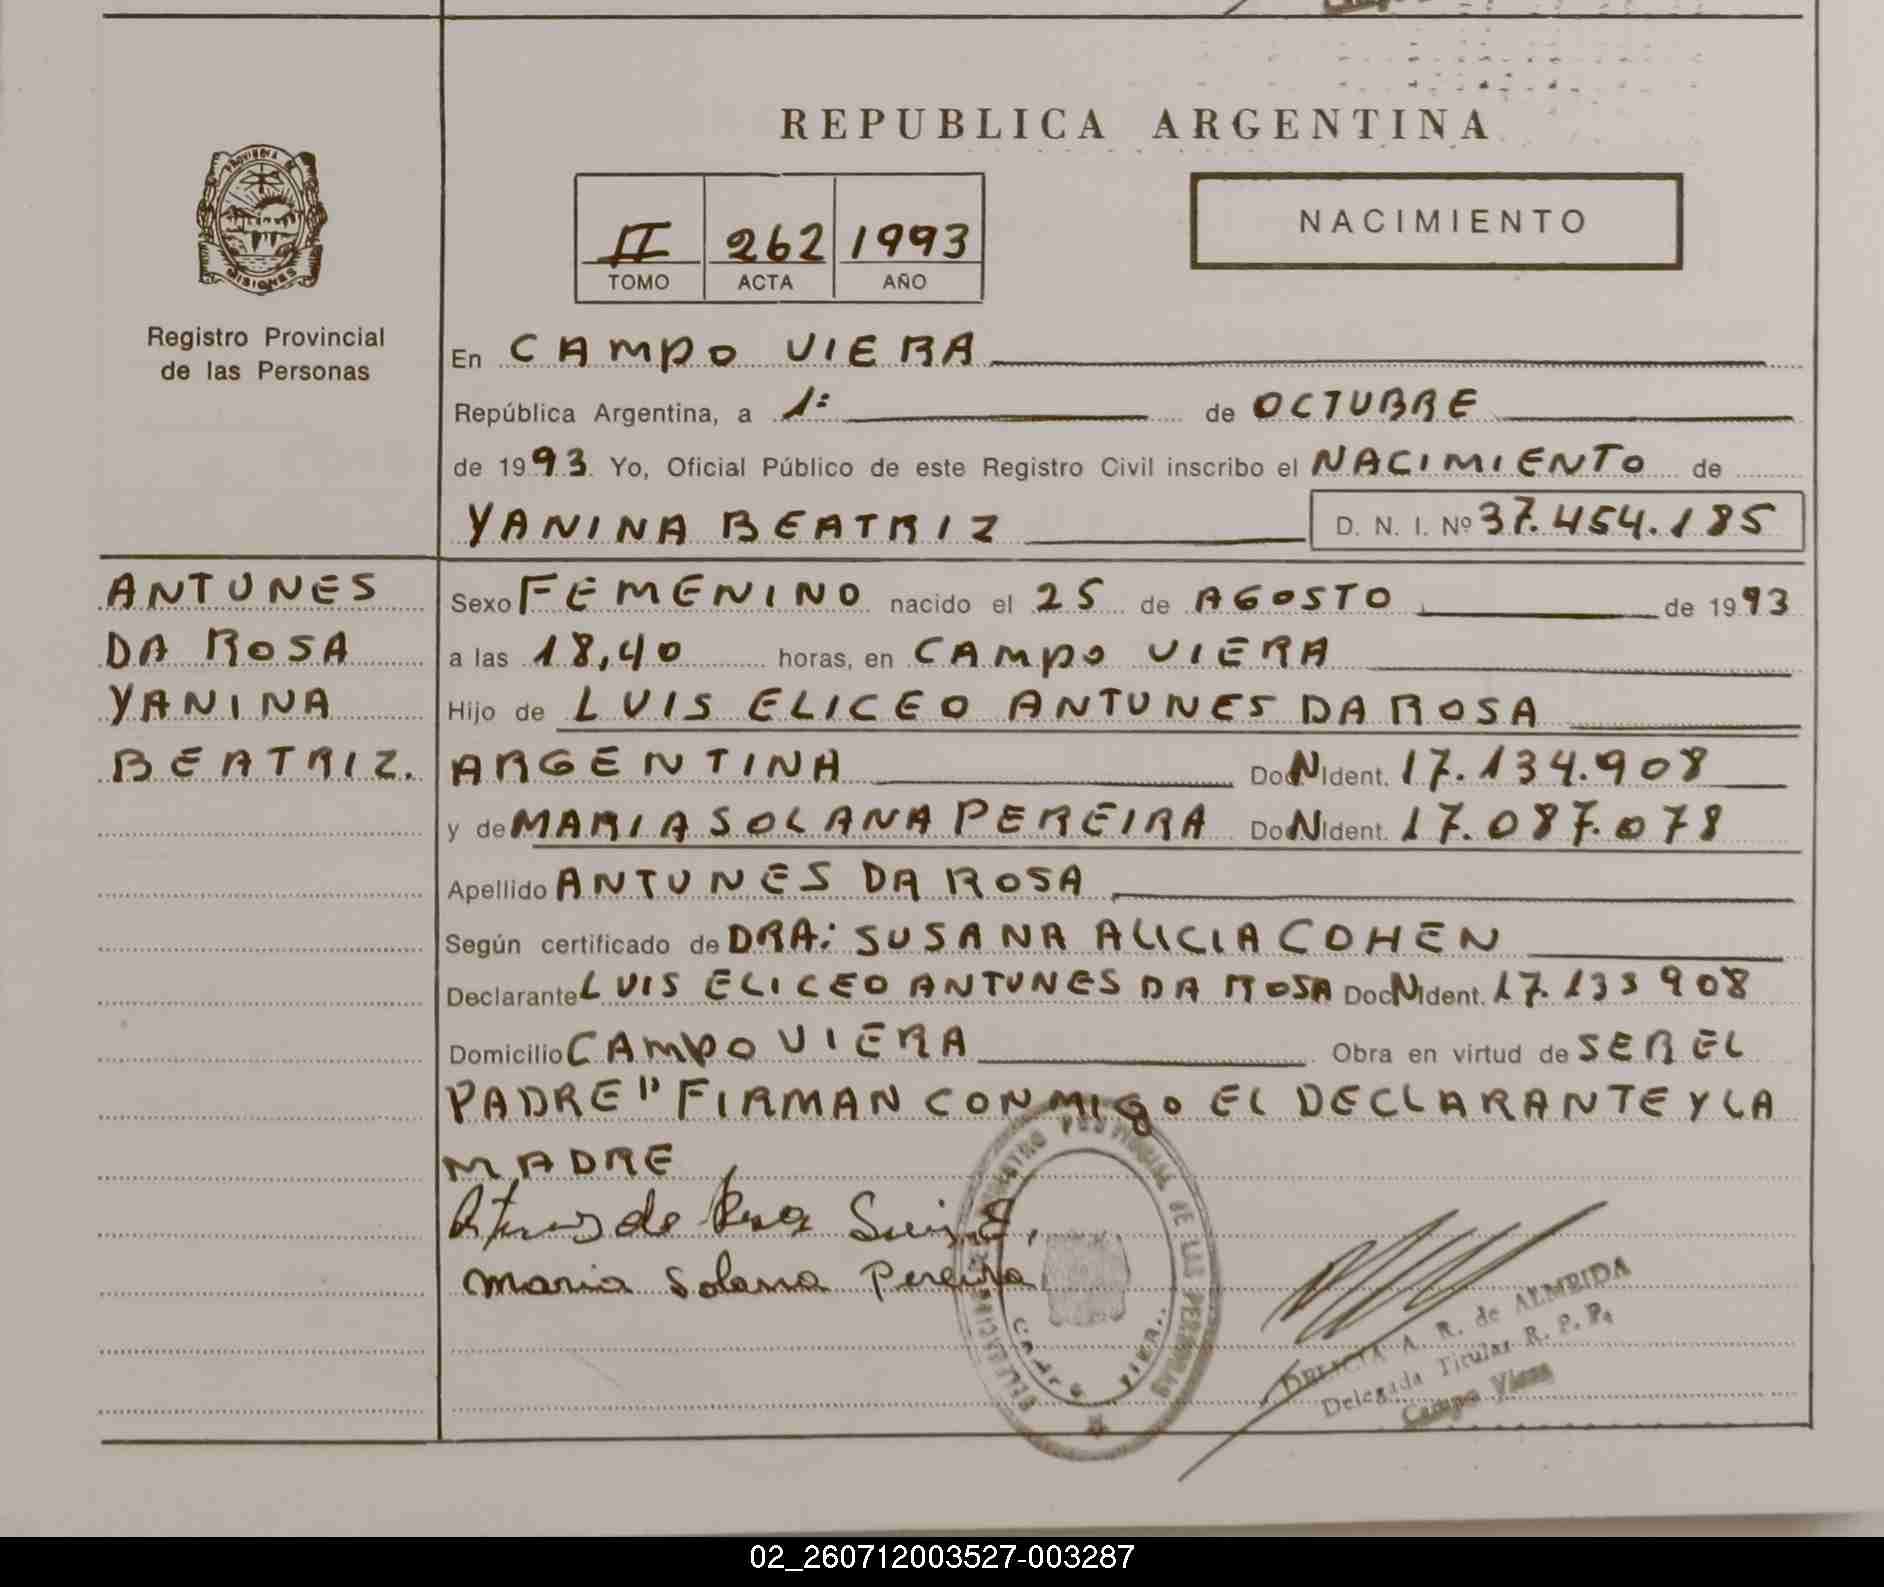 REPUBLICA ARGENTINA
PROVINCIA DE
MISIONES
Registro Provincial
de las Personas
II 262 1993
TOMO ACTA AÑO
NACIMIENTO
En CAMPO VIERA
República Argentina, a 1º de OCTUBRE
de 1993. Yo, Oficial Público de este Registro Civil inscribo el NACIMIENTO de
YANINA BEATRIZ D. N. I. Nº 37.454.185
ANTUNES
DA ROSA
YANINA
BEATRIZ.
Sexo FEMENINO nacido el 25 de AGOSTO de 1993
a las 18,40 horas, en CAMPO VIERA
Hijo de LUIS ELICEO ANTUNES DA ROSA
ARGENTINA DocNIdent. 17.134.908
y de MARIA SOLANA PEREIRA DocNIdent. 17.087.078
Apellido ANTUNES DA ROSA
Según certificado de DRA: SUSANA ALICIA COHEN
Declarante LUIS ELICEO ANTUNES DA ROSA DocNIdent. 17.133908
Domicilio CAMPO VIERA Obra en virtud de SER EL
PADRE" FIRMAN CONMIGO EL DECLARANTE Y LA
MADRE
Maria Solana Pereira
REGISTRO PROVINCIAL DE LAS PERSONAS
CAMPO VIERA
A. R. de ALMEIDA
Delegada Titular R. P. P.
Campo Viera
02_260712003527-003287